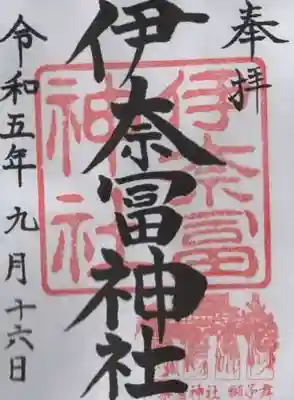 奉拝
伊奈冨神社
伊奈冨
神社
令和五年九月十六日
神社